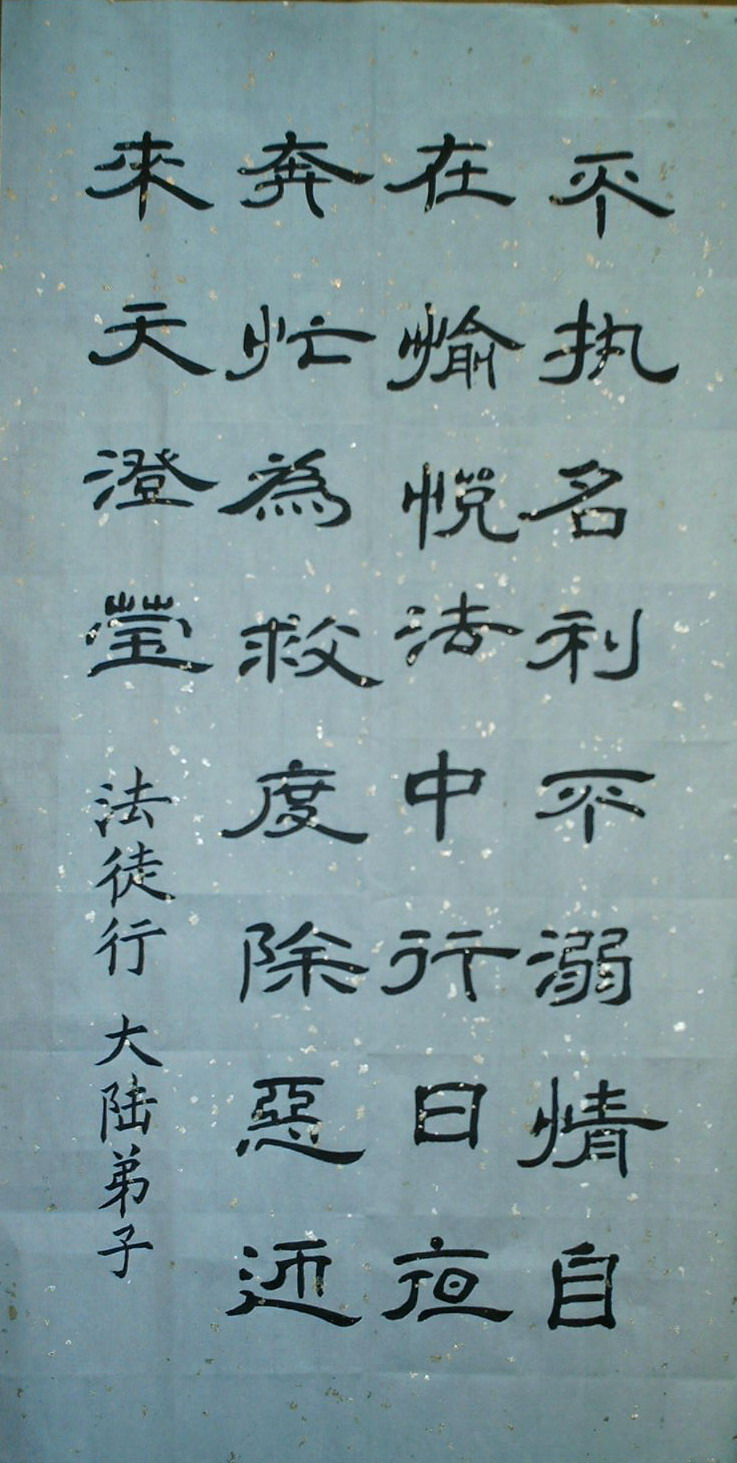 不执名利不溺情自
在愉悅法中行日夜
奔忙為救度除惡迎
來天澄瑩 法徒行 大陆弟子